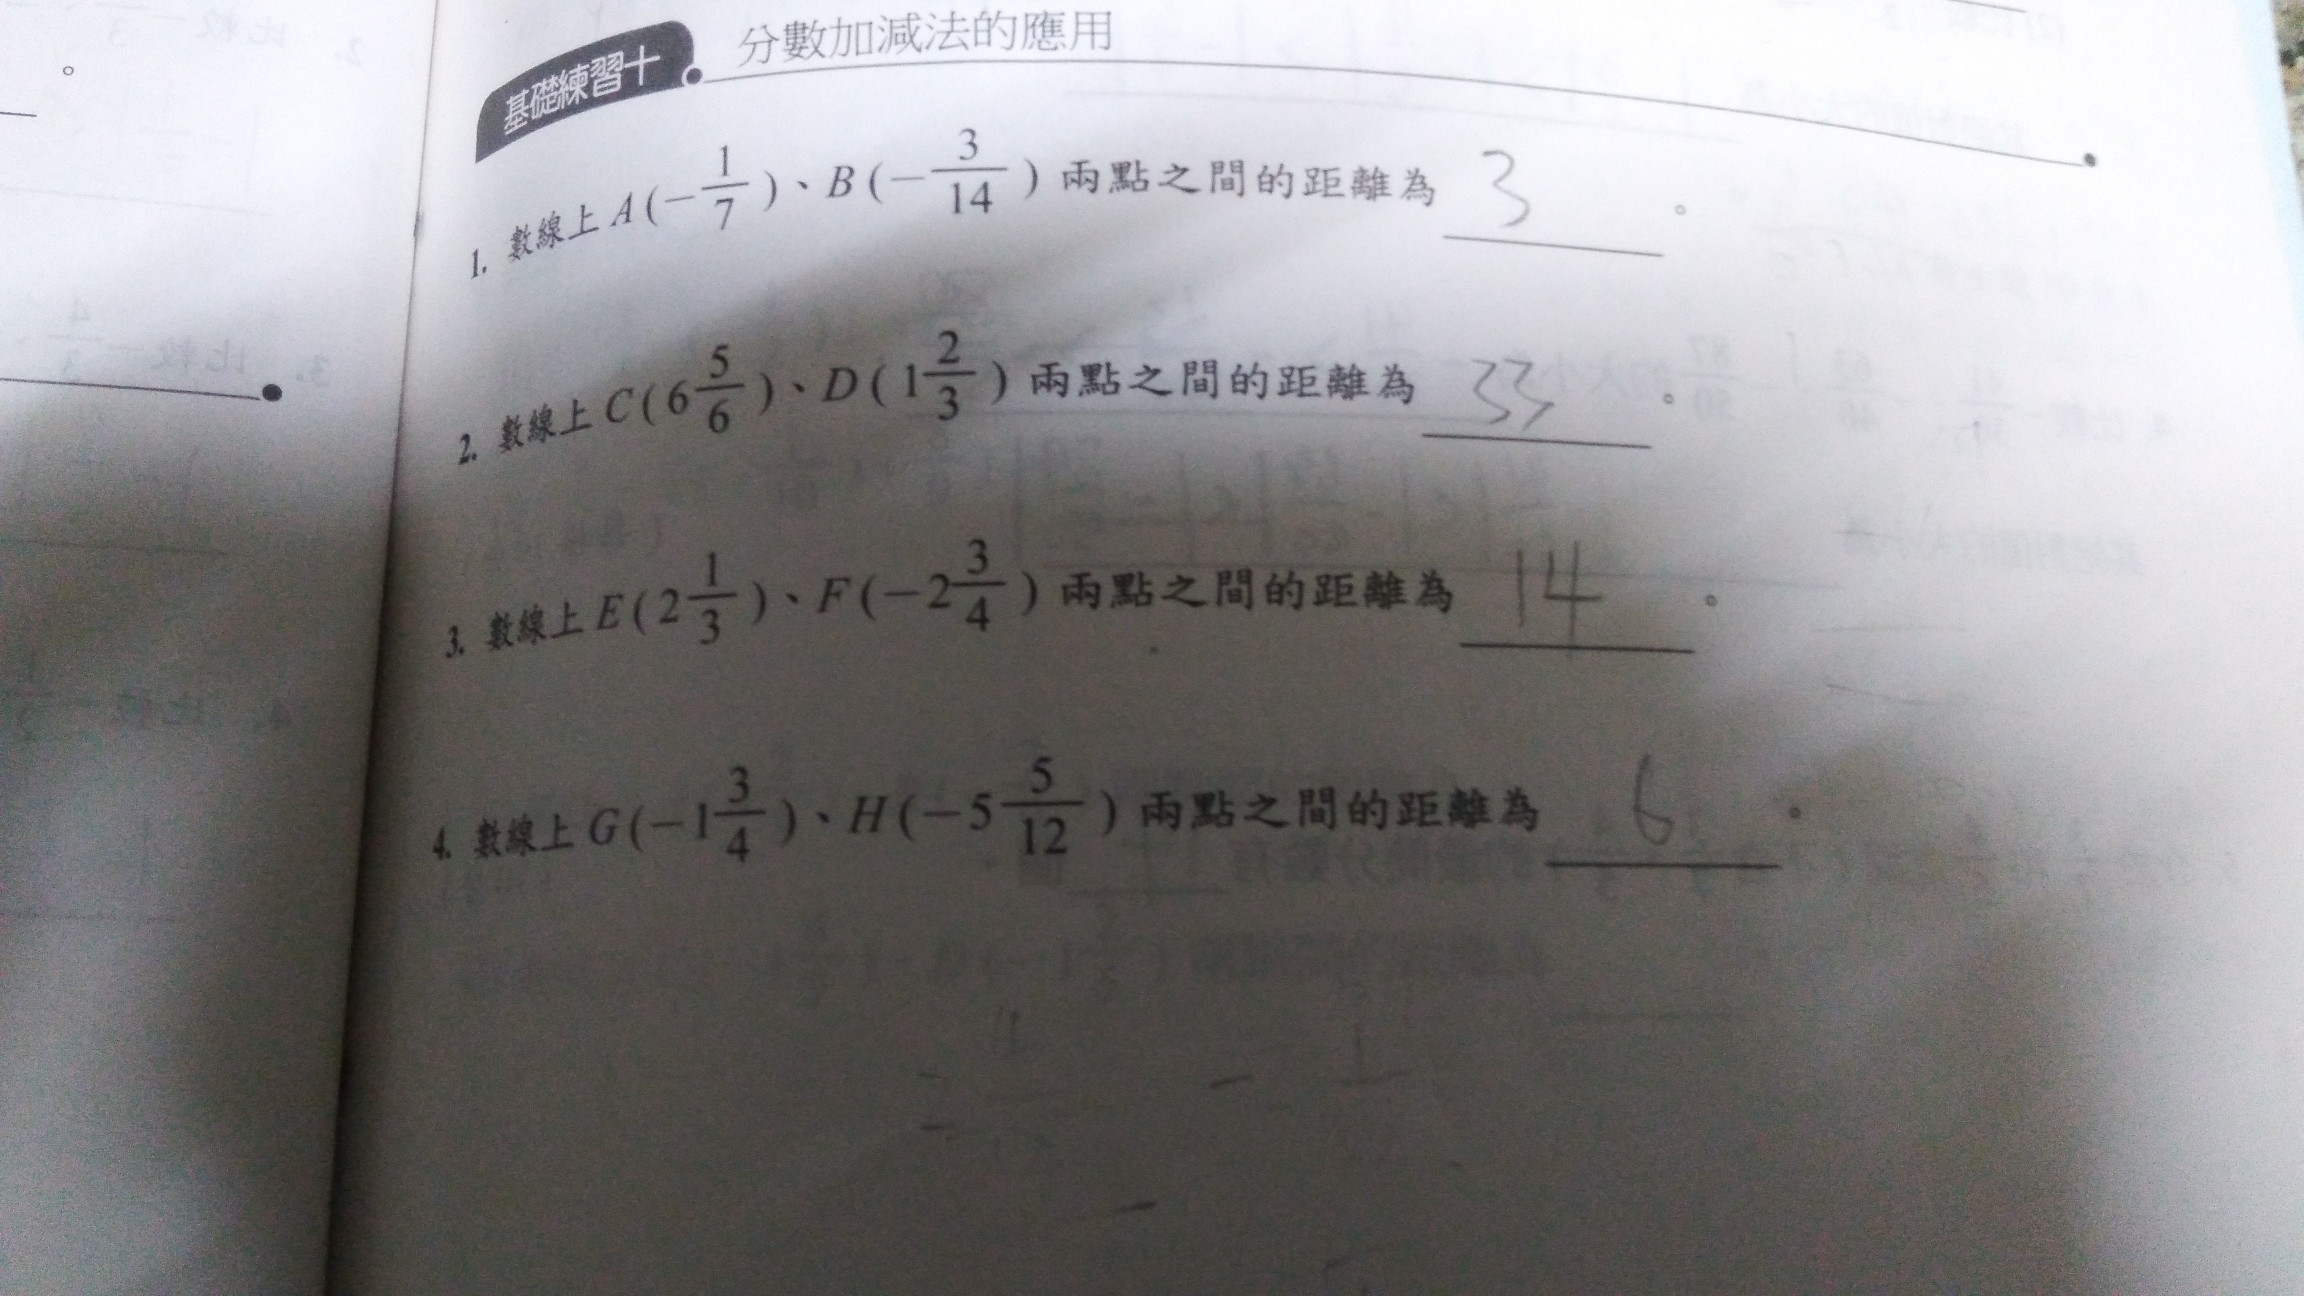 基礎練習十 分數加減法的應用
1. 數線上 A(-1/7)、B(-3/14) 兩點之間的距離為 3 。
2. 數線上 C(6 5/6)、D(1 2/3) 兩點之間的距離為 33 。
3. 數線上 E(2 1/3)、F(-2 3/4) 兩點之間的距離為 14 。
4. 數線上 G(-1 3/4)、H(-5 5/12) 兩點之間的距離為 6 。